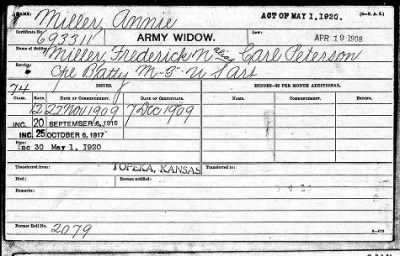 NAME: Miller, Annie ACT OF MAY 1, 1920.
Certificate No. 693311 ARMY WIDOW. APR 19 1909
Name of Soldier: Miller, Frederick N alias Carl Peterson
Service: Batty M-3- U S Art
ISSUES. MINORS—$2 PER MONTH ADDITIONAL.
RATE DATE OF COMMENCEMENT. DATE OF CERTIFICATE. COMMENCEMENT.
12 22 Nov 1909 7 Dec 1909
INC. 20 SEPTEMBER 8, 1916
INC. 25 OCTOBER 6, 1917
Inc 30 May 1, 1920
Transferred from: TOPEKA, KANSAS Transferred to:
Died: Bureau notified:
Remarks:
Former Roll No.
2079